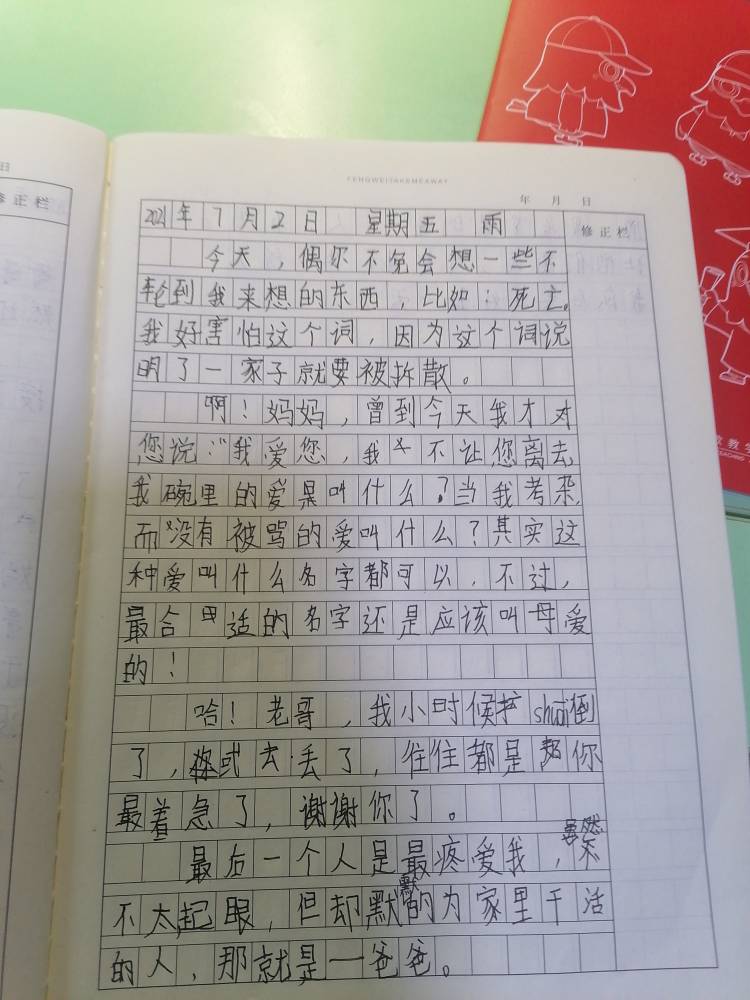 日
修正栏
FENGWEITAKEMEAWAY
年 月 日
2021年7月2日 星期五 雨
修正栏
今天，偶尔不免会想一些不
轮到我来想的东西，比如：死亡。
我好害怕这个词，因为这个词说
明了一家子就要被拆散。
啊！妈妈，曾到今天我才对
您说："我爱您，我 不让您离去
我碗里的爱是叫什么？当我考杂
而没有被骂的爱叫什么？其实这
种爱叫什么名字都可以，不过，
最合适的名字还是应该叫母爱
的！
哈！老哥，我小时候 shuai倒
了，或去丢了，往往都是 你
最着急了，谢谢你了。
虽然
最后一个人是最疼爱我，
不太起眼，但却默默的为家里干活
的人，那就是一爸爸。
教学
TEACHING